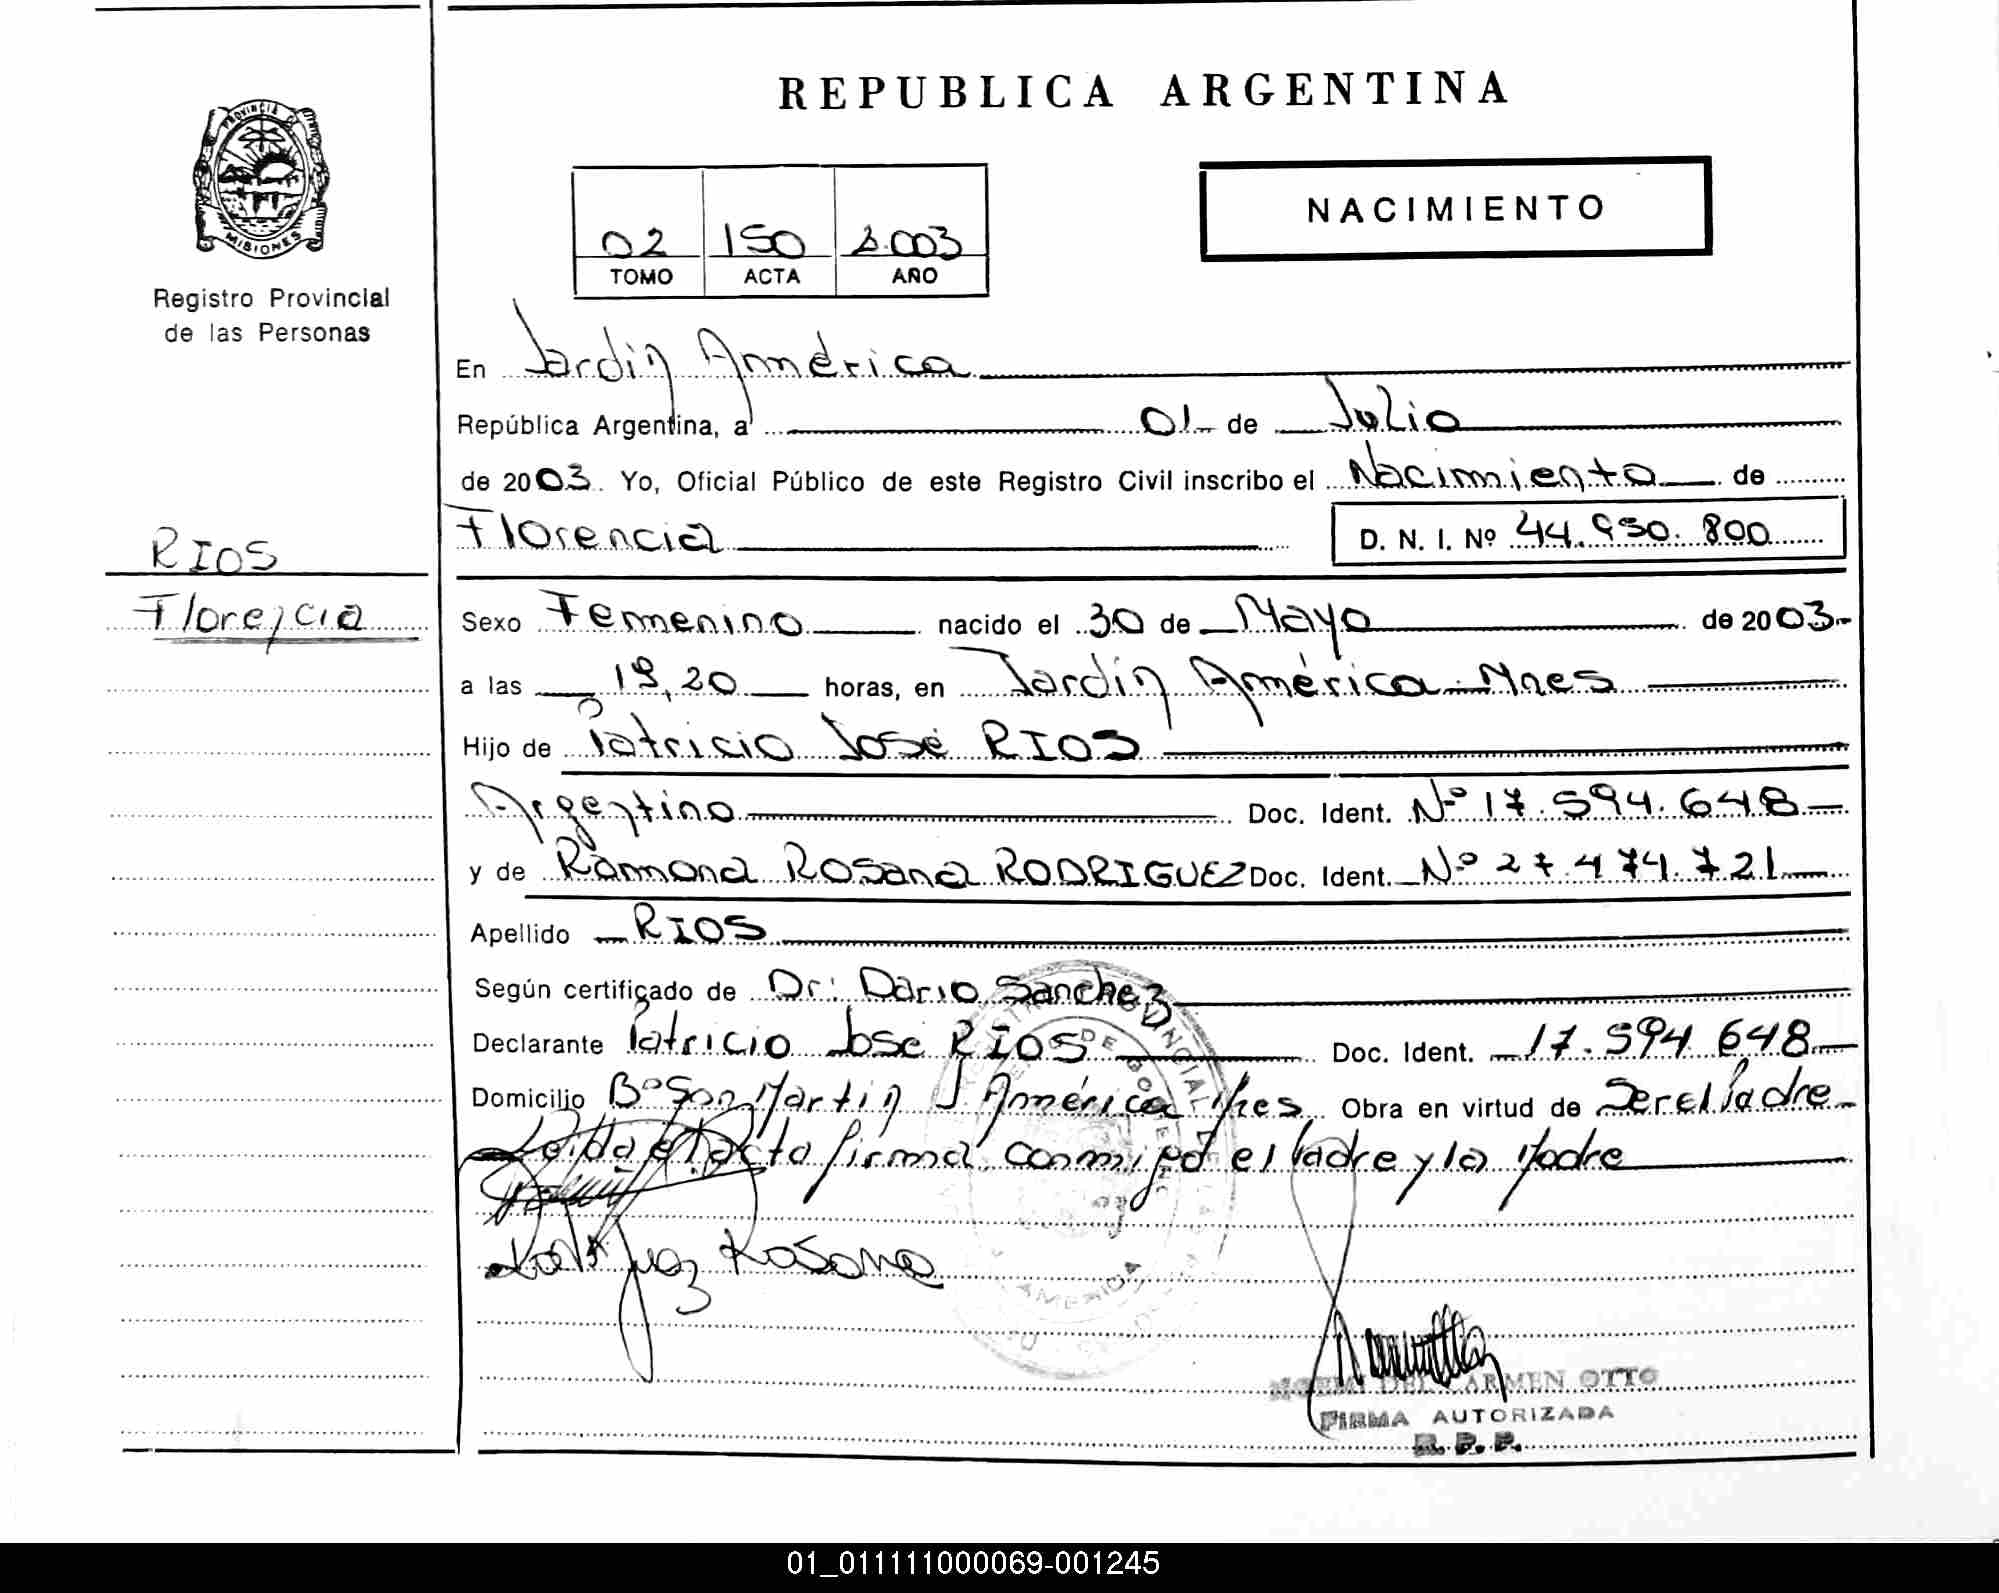 REPUBLICA ARGENTINA
PROVINCIA DE
MISIONES
Registro Provincial
de las Personas
02 150 2.003
TOMO ACTA AÑO
NACIMIENTO
En Jardín América
República Argentina, a 01 de Julio
de 2003. Yo, Oficial Público de este Registro Civil inscribo el Nacimiento de
Florencia D. N. I. Nº 44.950.800
RIOS
Florencia
Sexo Femenino nacido el 30 de Mayo de 2003
a las 19,20 horas, en Jardín América Mnes
Hijo de Patricio José RIOS
Argentino Doc. Ident. Nº 17.594.648
y de Ramona Rosana RODRIGUEZ Doc. Ident. Nº 27.474.721
Apellido RIOS
Según certificado de Dr: Dario Sanchez
Declarante Patricio José RIOS Doc. Ident. 17.594.648
Domicilio Bº San Martín J. América Mnes Obra en virtud de Ser el Padre
Leida el Acta firma conmigo el Padre y la Madre
Rosana
NOEMI DEL CARMEN OTTO
FIRMA AUTORIZADA
R. P. P.
01_011111000069-001245